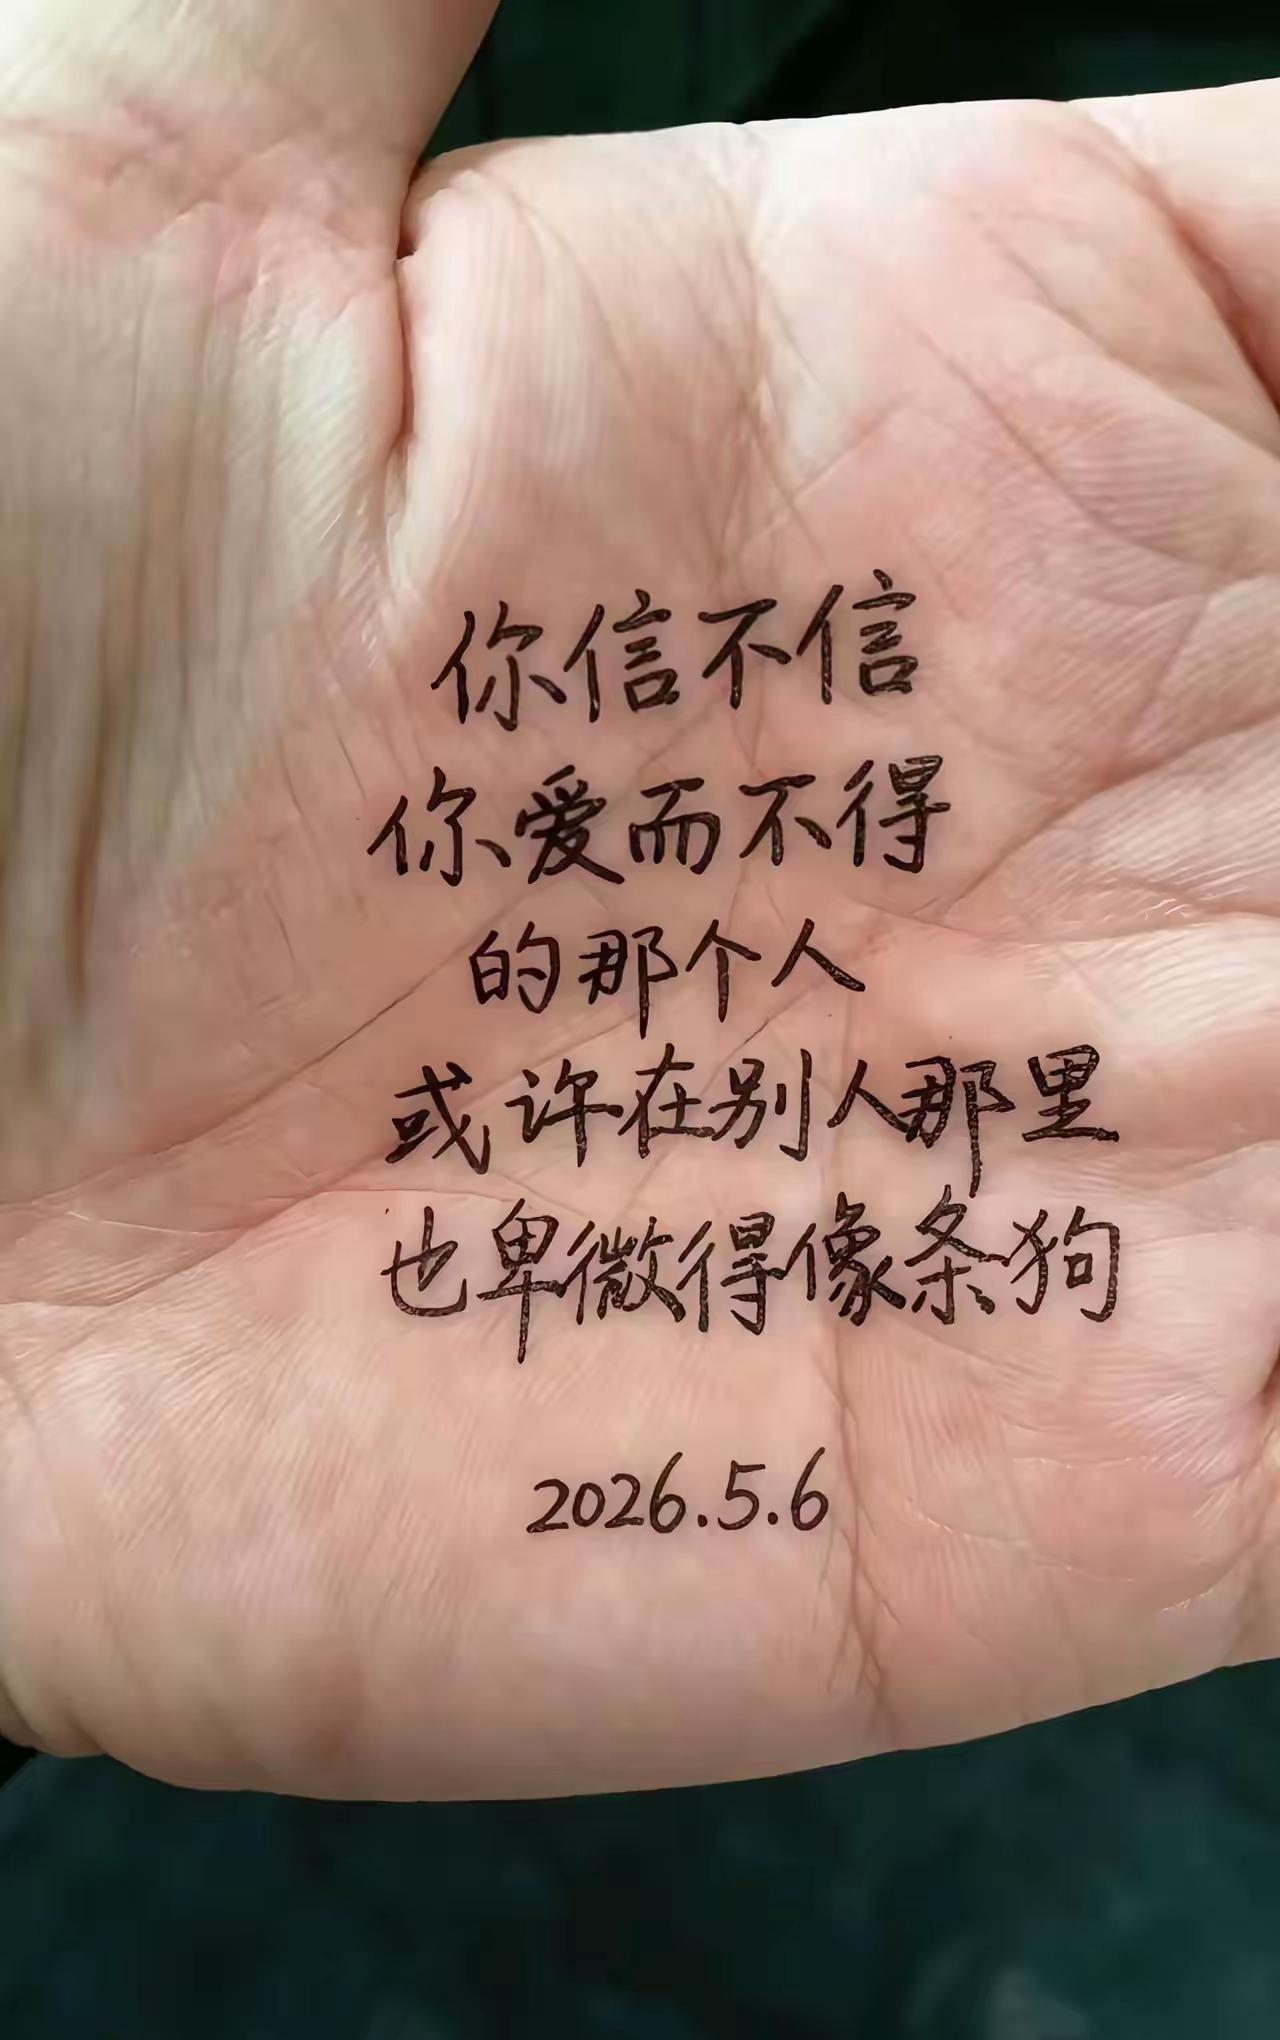 你信不信
你爱而不得
的那个人
或许在别人那里
也卑微得像条狗
2026.5.6